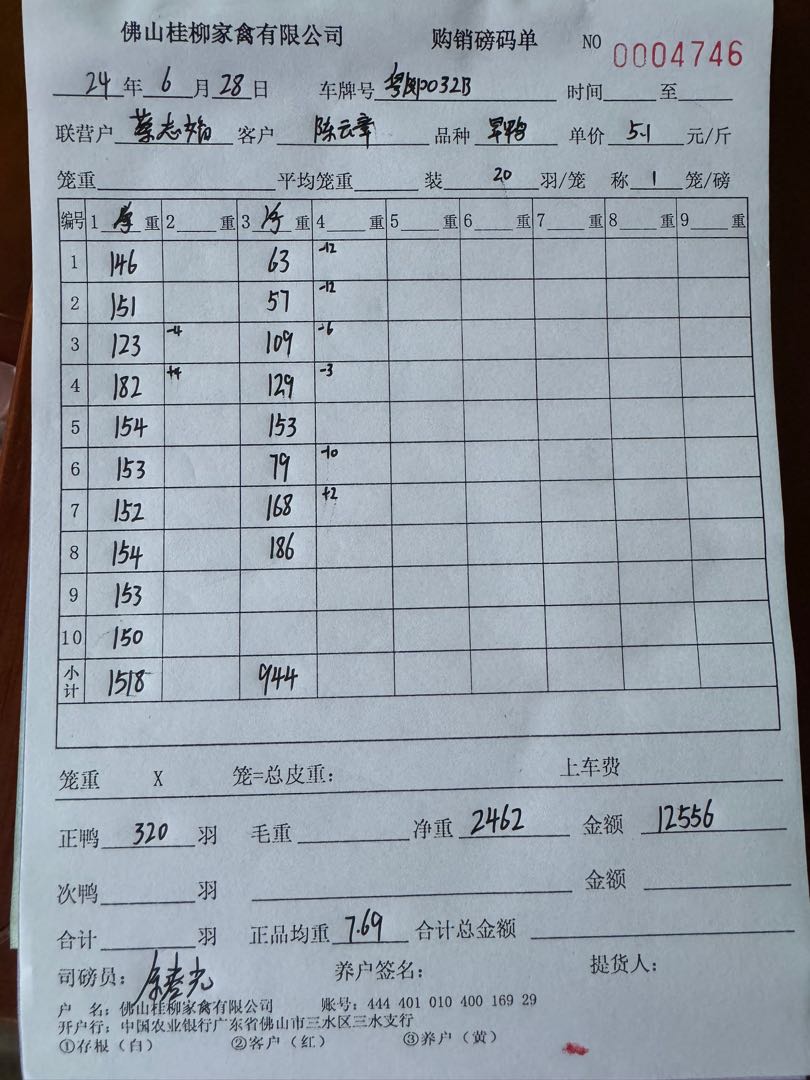 佛山桂柳家禽有限公司 购销磅码单 NO 0004746
24年6月28日 车牌号 0032B 时间 至
联营户 蔡志 客户 陈云章 品种 旱鸭 单价 5.1 元/斤
笼重 平均笼重 装 20 羽/笼 称 1 笼/磅
编号 1 重 2 重 3 重 4 重 5 重 6 重 7 重 8 重 9 重
1 146 63 -12
2 151 57 -12
3 123 -4 109 -6
4 182 +4 129 -3
5 154 153
6 153 79 -10
7 152 168 +2
8 154 186
9 153
10 150
小计 1518 944
笼重 X 笼=总皮重: 上车费
正鸭 320 羽 毛重 净重 2462 金额 12556
次鸭 羽 金额
合计 羽 正品均重 7.69 合计总金额
司磅员: 养户签名: 提货人:
户 名: 佛山桂柳家禽有限公司 账号: 444 401 010 400 169 29
开户行: 中国农业银行广东省佛山市三水区三水支行
①存根(白) ②客户(红) ③养户(黄)